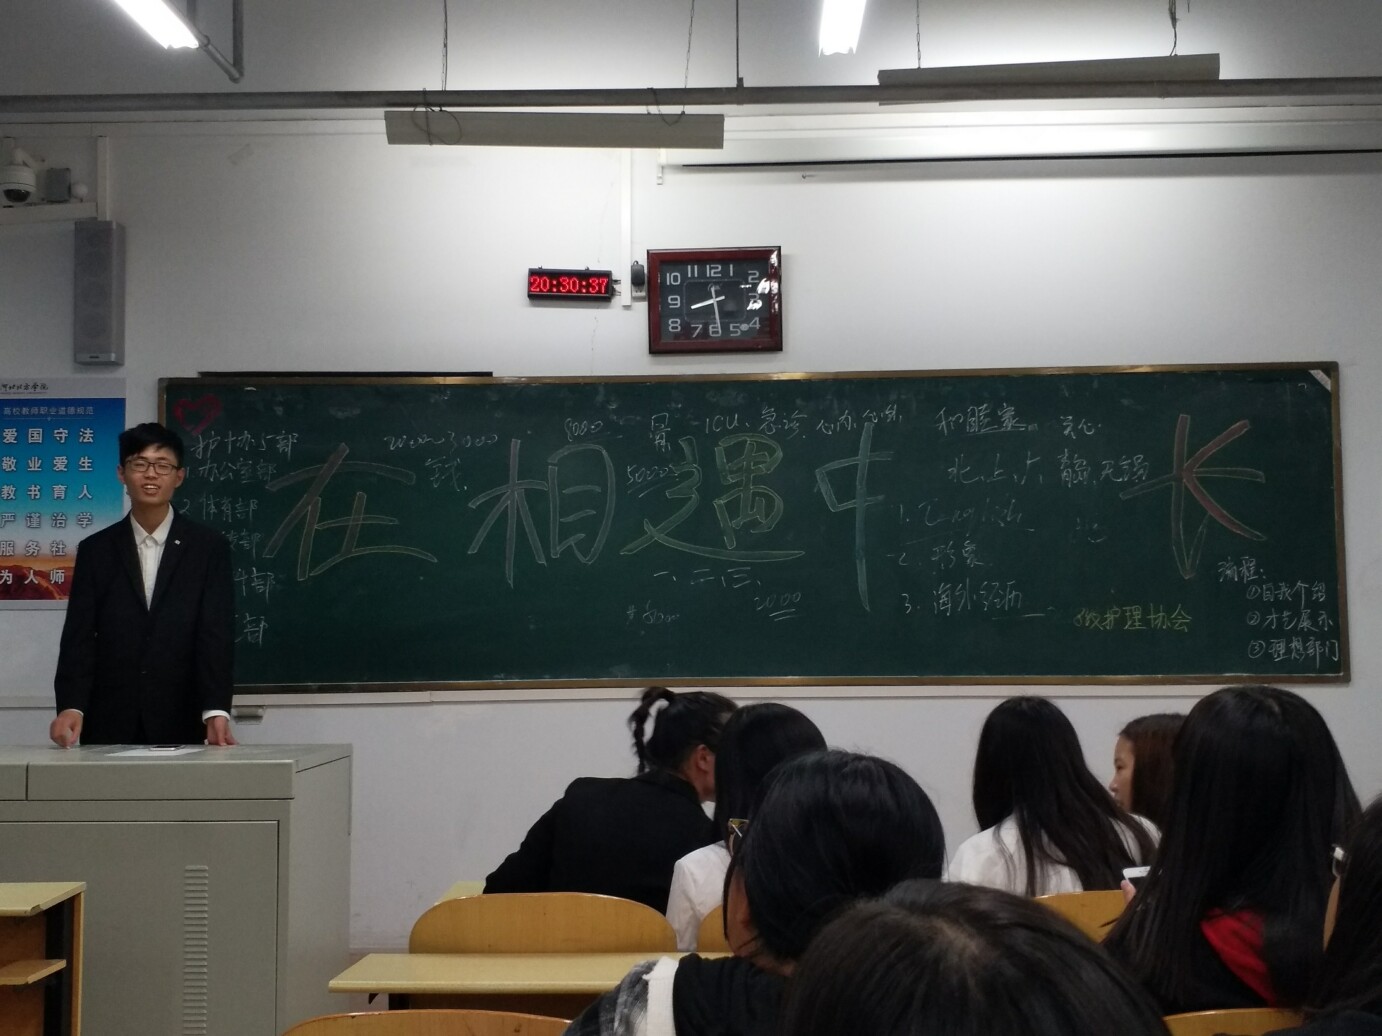 20:30:37
11 12 1
10 2
9 3
8 4
7 6 5
高校教师职业道德规范
爱国守法
敬业爱生
教书育人
严谨治学
服务社
为人师
护协5部
办公室部
体育部
在相遇中
长
钱
8000
5000
ICU、急诊、心内、心外
和睦家
北、上、广
无锡
1. English
2. 形象
3. 海外经历
一、二、三、
2000
护理协会
流程：
①自我介绍
②才艺展示
③理想部门